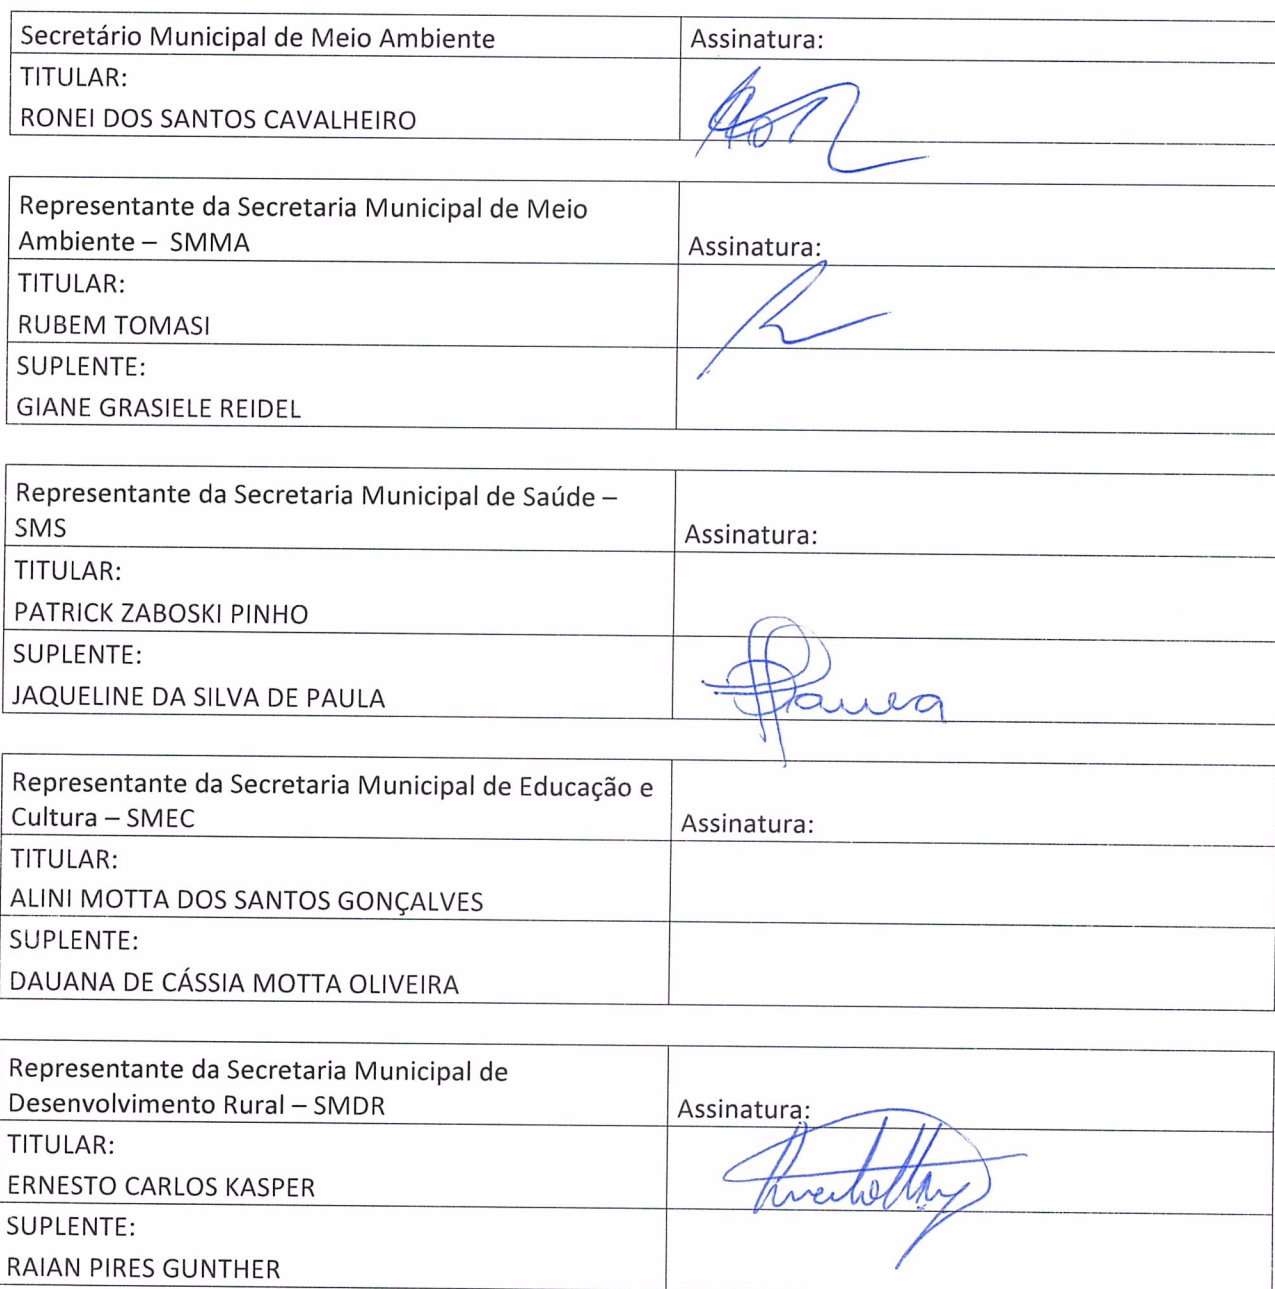 Secretário Municipal de Meio Ambiente Assinatura:
TITULAR:
RONEI DOS SANTOS CAVALHEIRO
Representante da Secretaria Municipal de Meio
Ambiente – SMMA Assinatura:
TITULAR:
RUBEM TOMASI
SUPLENTE:
GIANE GRASIELE REIDEL
Representante da Secretaria Municipal de Saúde –
SMS Assinatura:
TITULAR:
PATRICK ZABOSKI PINHO
SUPLENTE:
JAQUELINE DA SILVA DE PAULA
Representante da Secretaria Municipal de Educação e
Cultura – SMEC Assinatura:
TITULAR:
ALINI MOTTA DOS SANTOS GONÇALVES
SUPLENTE:
DAUANA DE CÁSSIA MOTTA OLIVEIRA
Representante da Secretaria Municipal de
Desenvolvimento Rural – SMDR Assinatura:
TITULAR:
ERNESTO CARLOS KASPER
SUPLENTE:
RAIAN PIRES GUNTHER